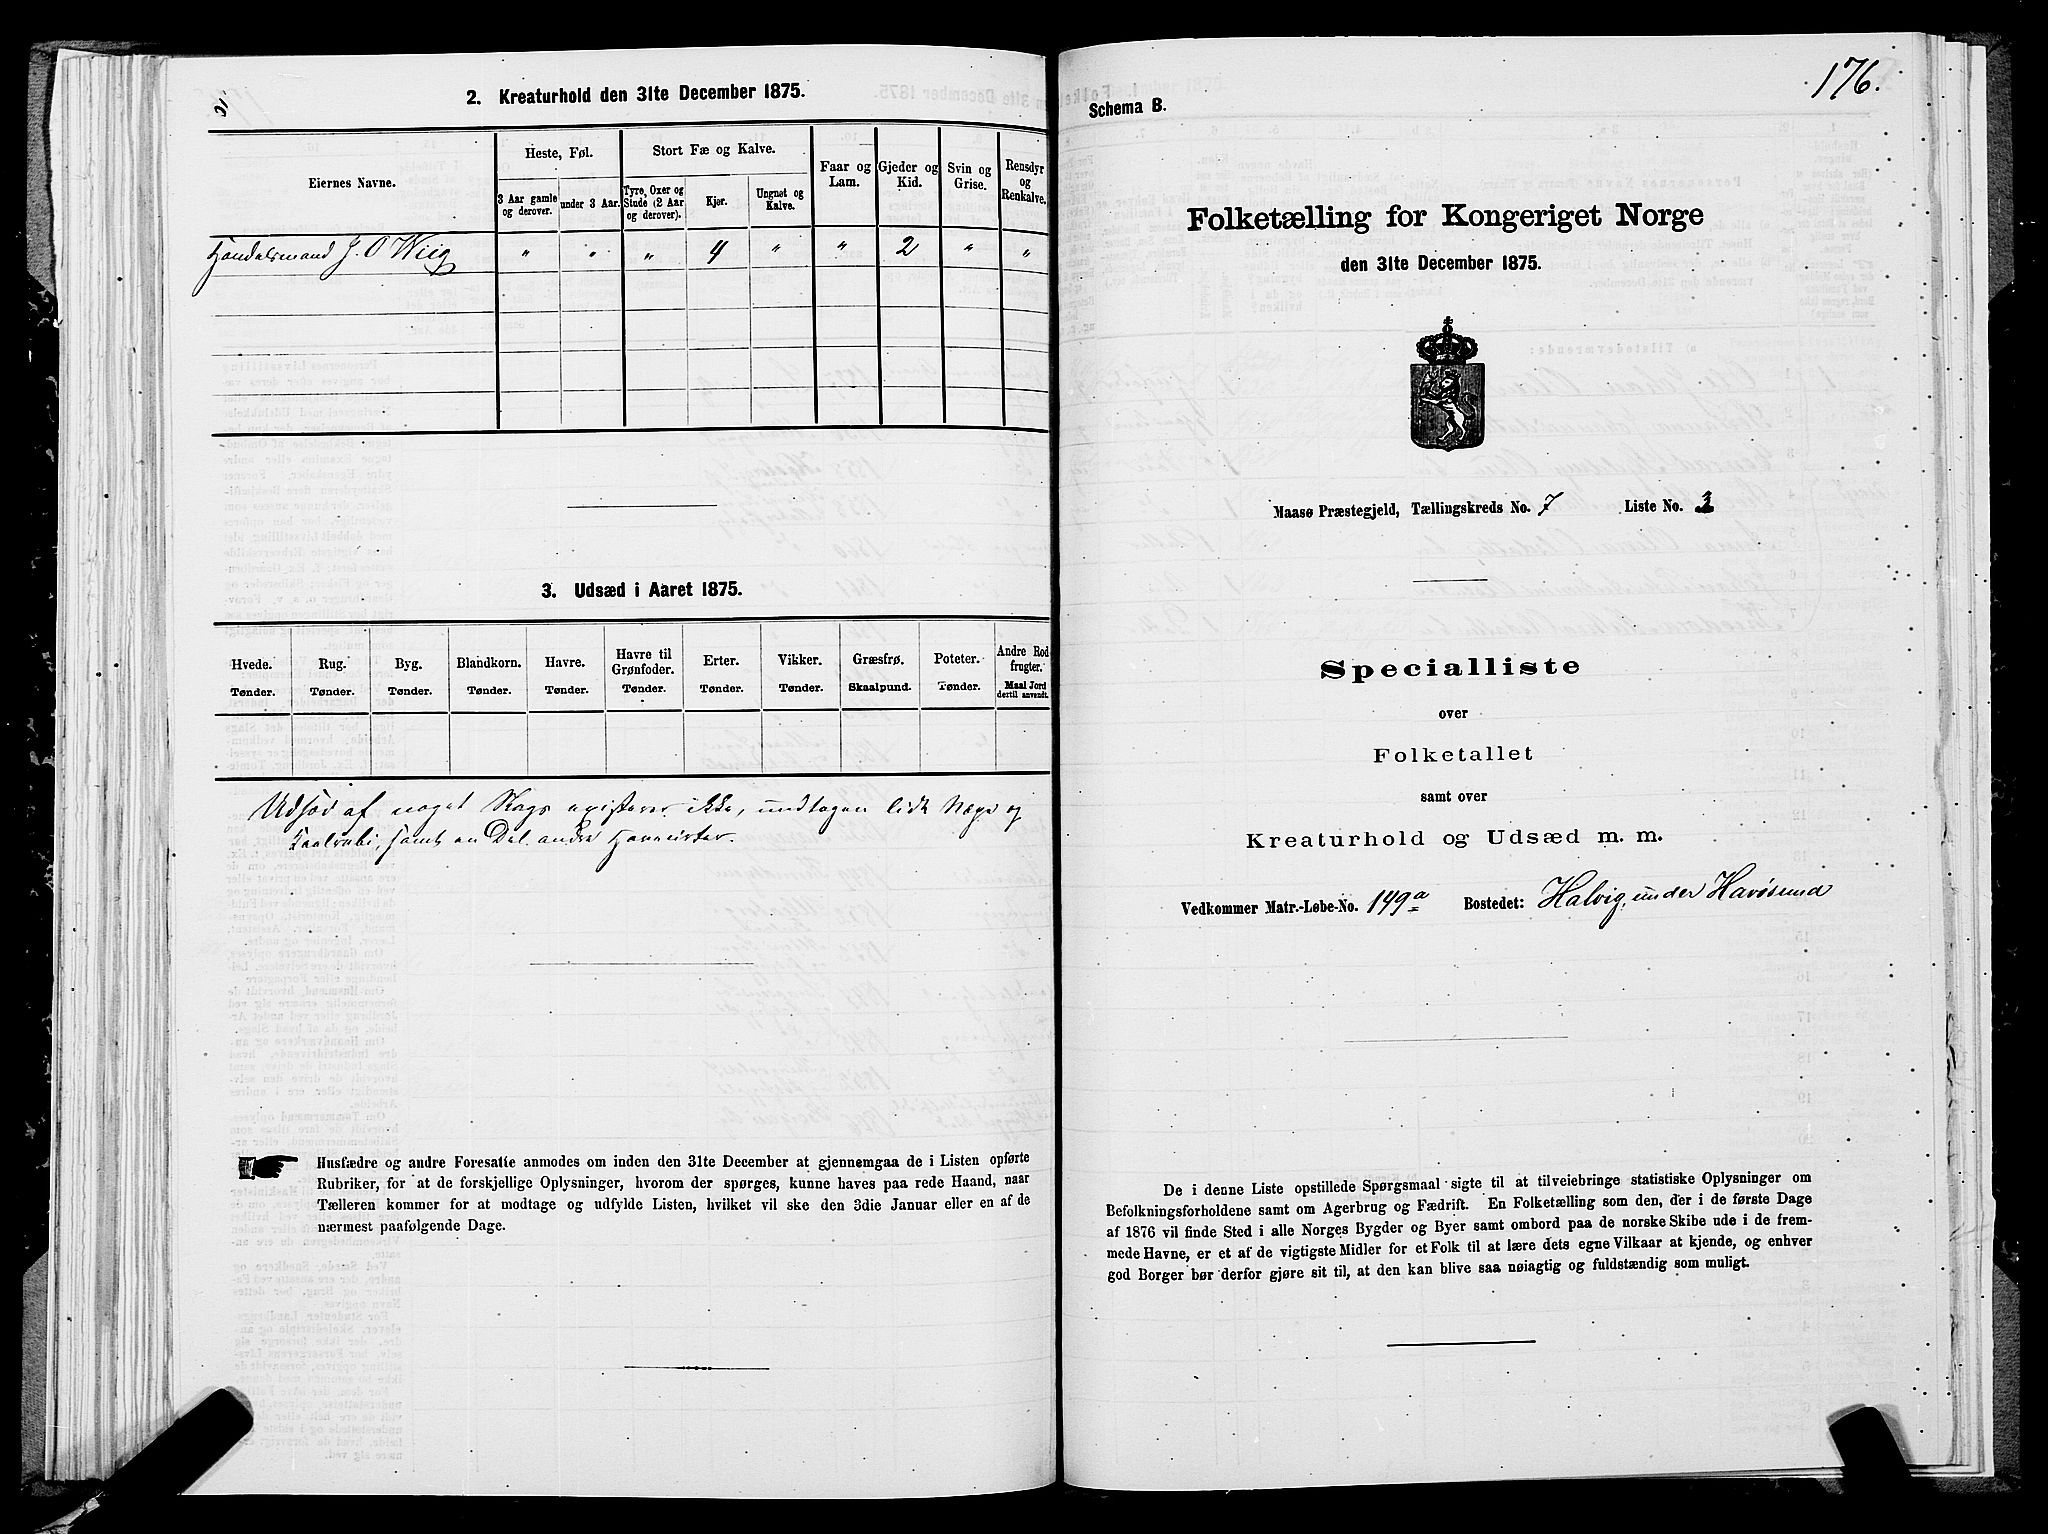 2. Kreaturhold den 31te December 1875.
Eiernes Navne.
Heste, Føl.
Stort Fæ og Kalve.
Faar og Lam.
Gjeder og Kid.
Svin og Grise.
Rensdyr og Renkalve.
3 Aar gamle og derover.
under 3 Aar.
Tyre, Oxer og Stude (2 Aar og derover).
Kjør.
Ungnøt og Kalve.
Handelsmand J. O Wiig " " " 4 " " 2 " "
3. Udsæd i Aaret 1875.
Hvede. Rug. Byg. Blandkorn. Havre. Havre til Grønfoder. Erter. Vikker. Græsfrø. Poteter. Andre Rodfrugter.
Tønder. Tønder. Tønder. Tønder. Tønder. Tønder. Tønder. Tønder. Skaalpund. Tønder. Maal Jord dertil anvendt.
Udsæd af noget Slags existerer ikke, undtagen lidt Næpe og
Kaalrabi, samt en Del andre Haveurter.
Husfædre og andre Foresatte anmodes om inden den 31te December at gjennemgaa de i Listen opførte
Rubriker, for at de forskjellige Oplysninger, hvorom der spørges, kunne haves paa rede Haand, naar
Tælleren kommer for at modtage og udfylde Listen, hvilket vil ske den 3die Januar eller en af de
nærmest paafølgende Dage.
176.
Schema B.
Folketælling for Kongeriget Norge
den 31te December 1875.
Maasø Præstegjeld, Tællingskreds No. 7 Liste No. 3
Specialliste
over
Folketallet
samt over
Kreaturhold og Udsæd m. m.
Vedkommer Matr.-Løbe-No. 149a Bostedet: Halvig, under Havøsund
De i denne Liste opstillede Spørgsmaal sigte til at tilveiebringe statistiske Oplysninger om
Befolkningsforholdene samt om Agerbrug og Fædrift. En Folketælling som den, der i de første Dage
af 1876 vil finde Sted i alle Norges Bygder og Byer samt ombord paa de norske Skibe ude i de frem-
mede Havne, er et af de vigtigste Midler for et Folk til at lære dets egne Vilkaar at kjende, og enhver
god Borger bør derfor gjøre sit til, at den kan blive saa nøiagtig og fuldstændig som muligt.